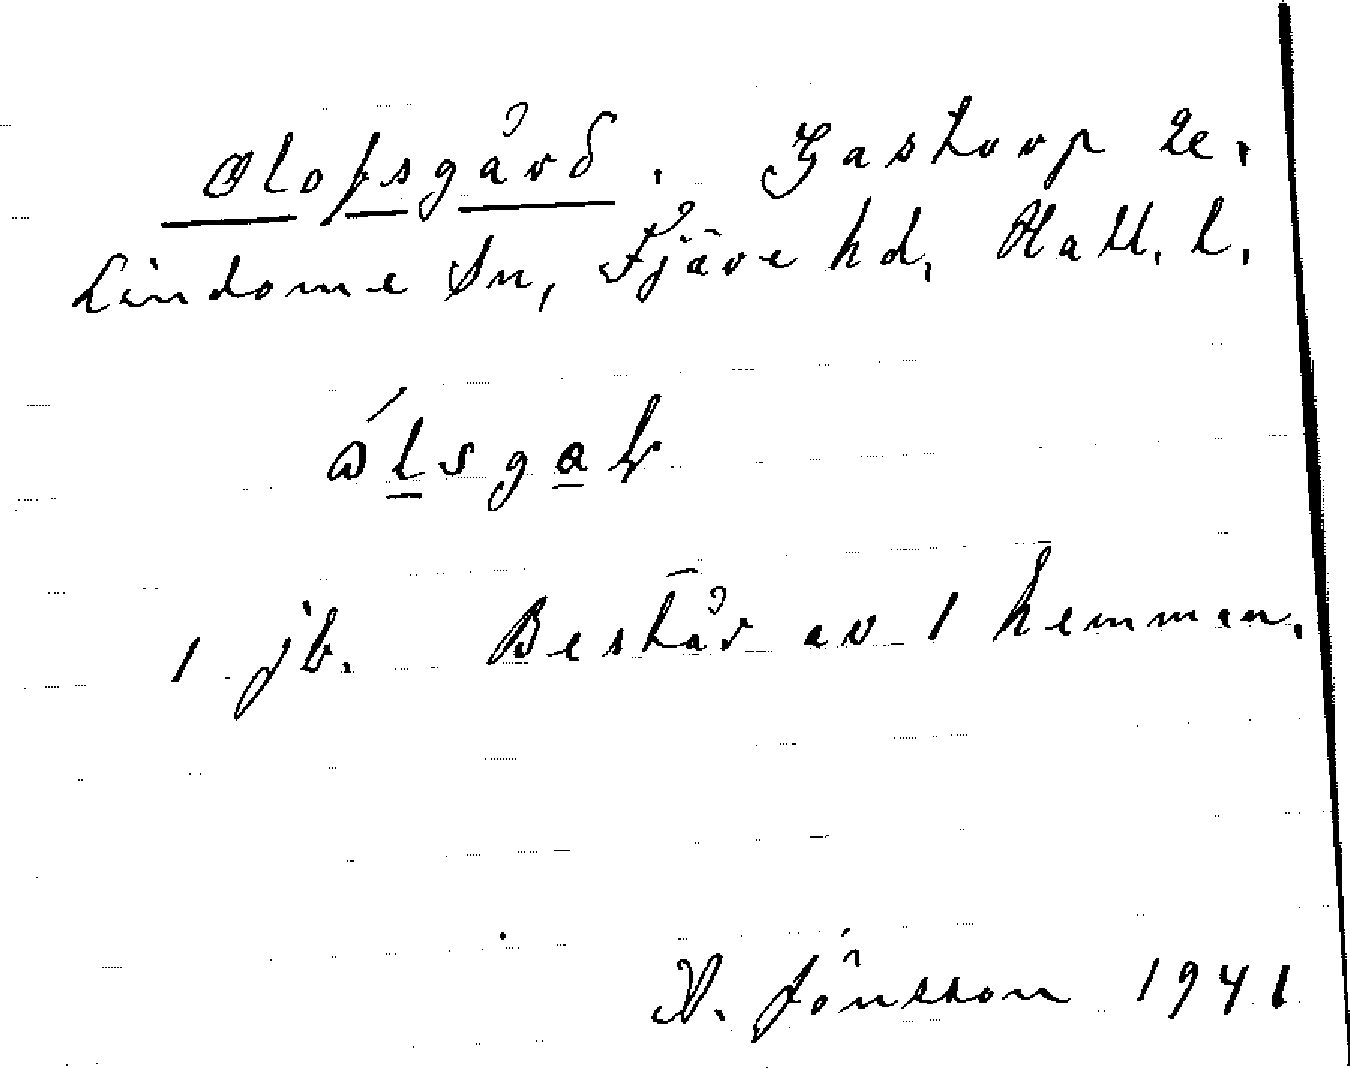 Olofsgård. Gastorp 2e.
Lindome Sn, Fjäre hd, Hall. l.
1 jb. Består av 1 hemman.
V. Jönsson 1941